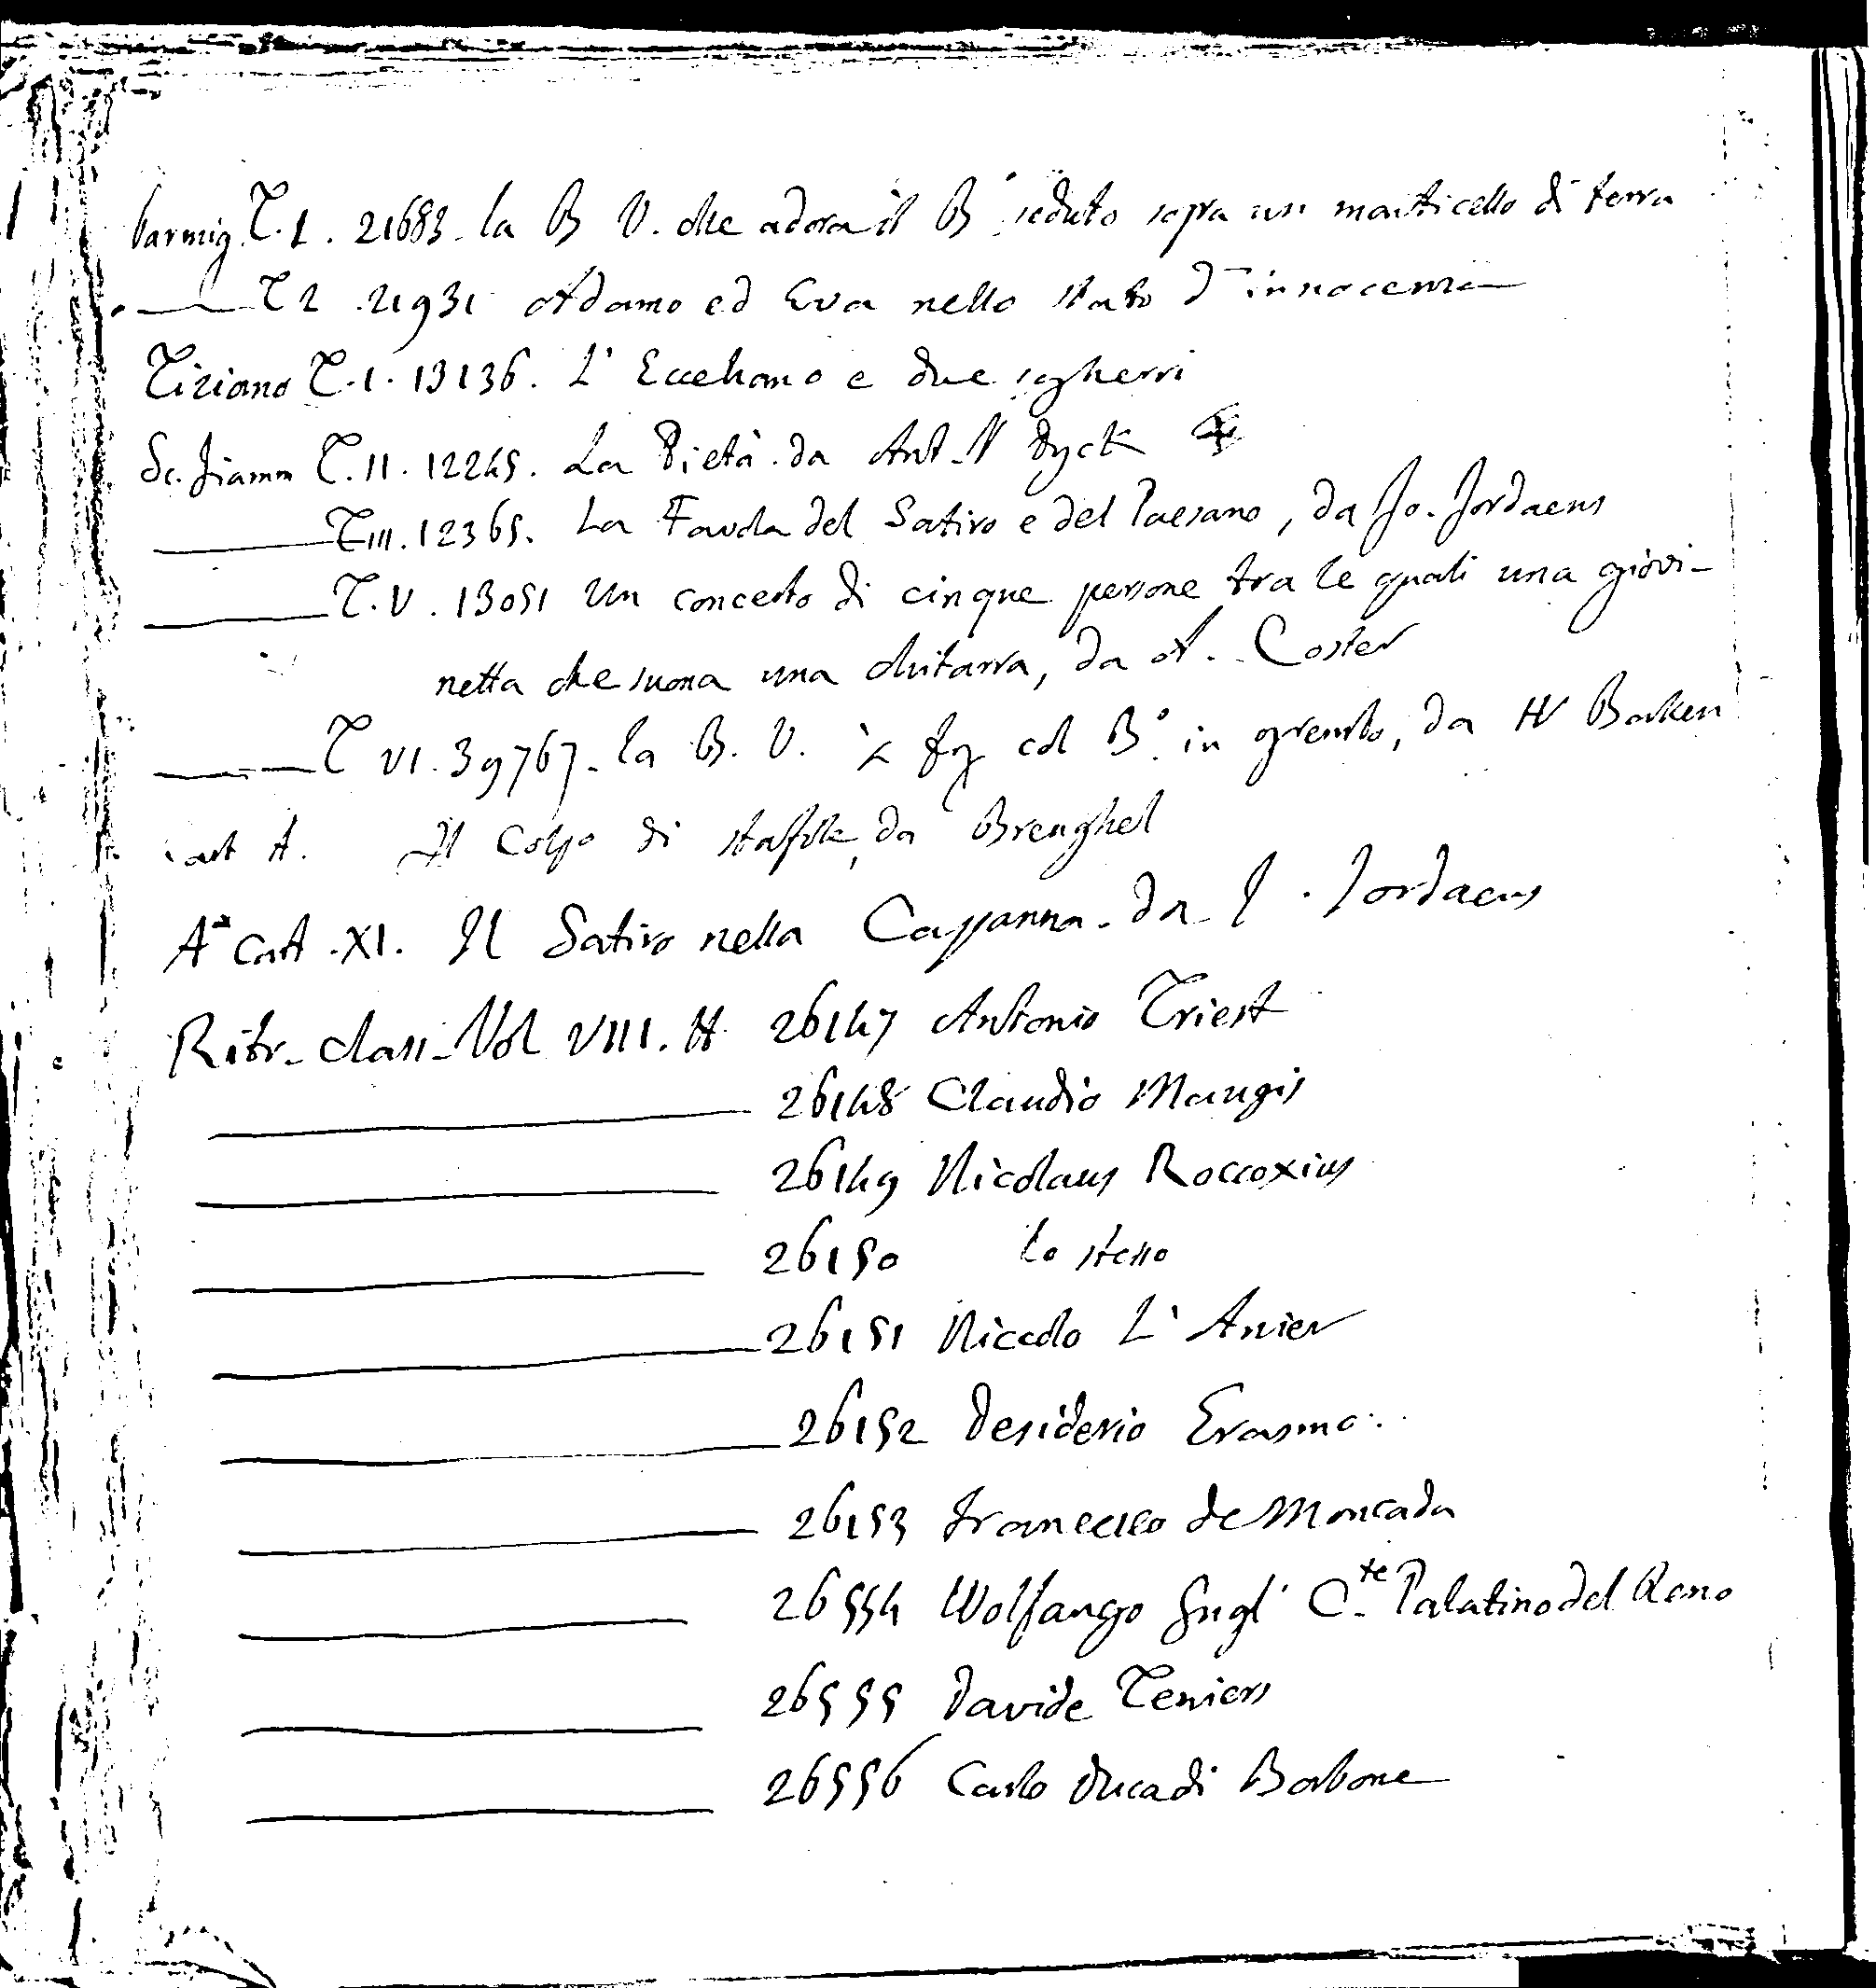 Parmig. T. I. 21683. la B V. che adora il B.º seduto sopra un monticello di terra
T 2. 21931 Adamo ed Eva nello stato d'innocenza
Tiziano T. I. 13136. L'Eccehomo e due sgherri
Sc. fiamm T. II. 12245. La Pietà. da Ant. V Dyck
T III. 12365. La Favola del Satiro e del Paesano, da Jo. Jordaens
T. V. 13051 Un concerto di cinque persone tra le quali una giovi-
netta che suona una chitarra, da A. Coster
T VI. 39767. la B. V. col B.º in grembo, da
Cart A. Il Colpo di staffile, da Breughel
Aª Cart. XI. Il Satiro nella Capanna. da J. Jordaens
Ritr. class. Vol VIII. H 26147 Antonio Triest
26148 Claudio Maugis
26149 Nicolaus Roccoxius
26150 lo stesso
26151 Niccolo L'Anier
26152 Desiderio Erasmo.
26153 Francesco de Moncada
26554 Wolfango Gugl. C.te Palatino del Reno
26555 Davide Teniers
26556 Carlo Duca di Borbone